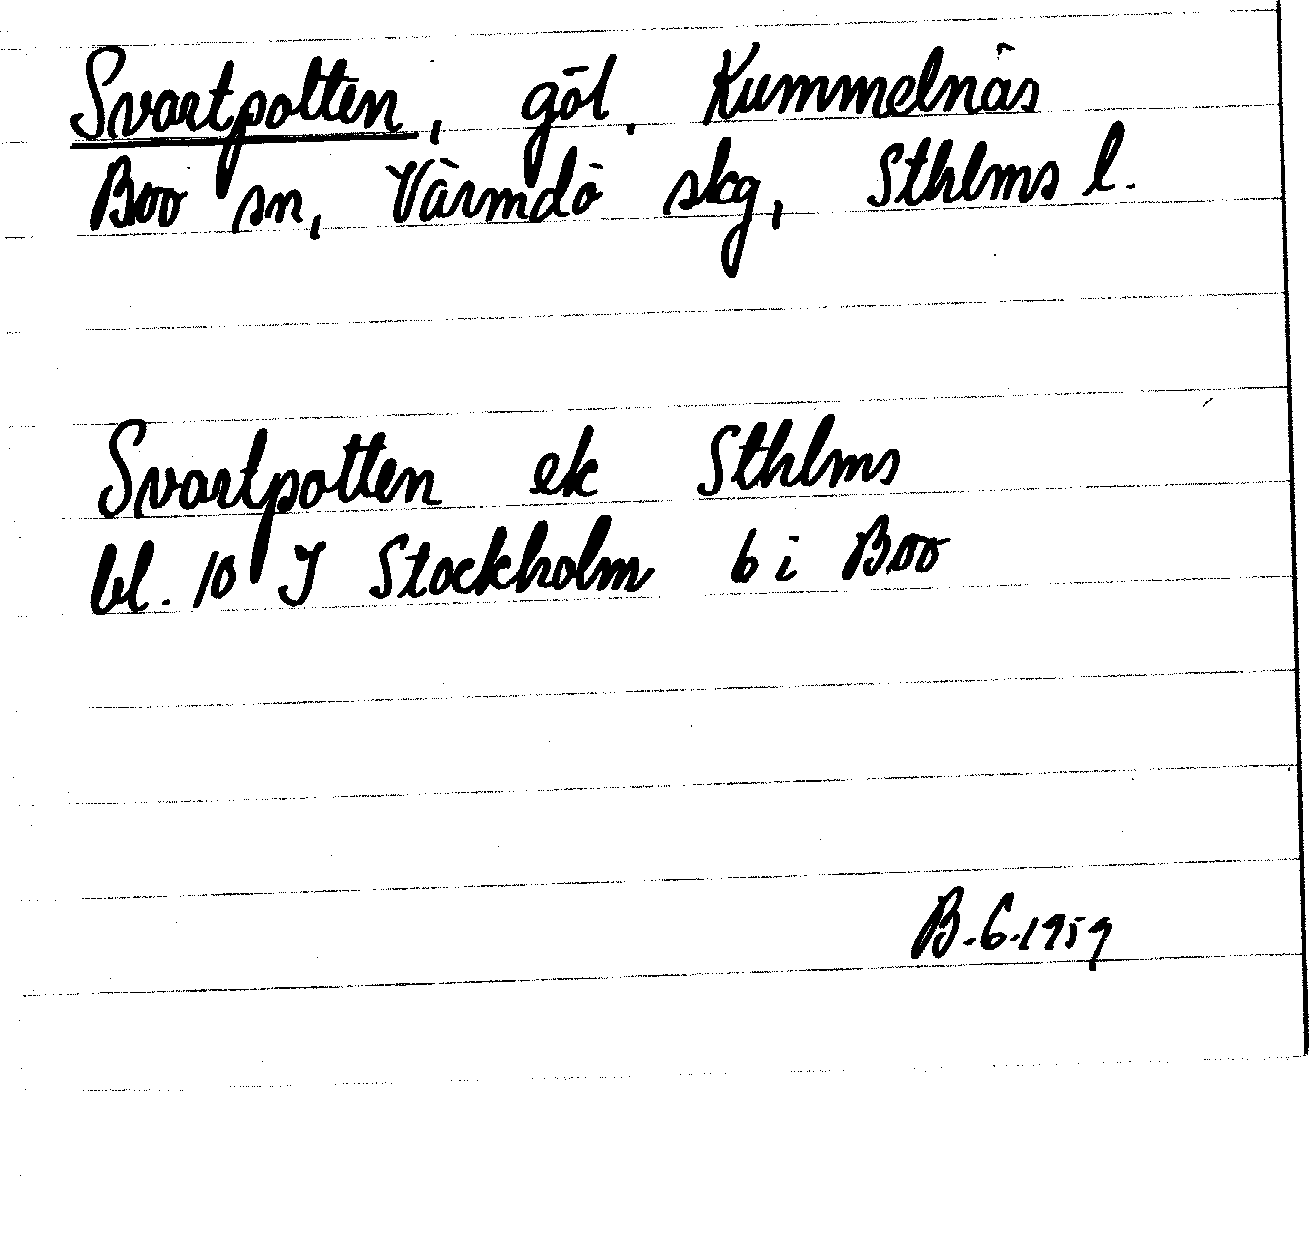 Svartpotten, göl, Kummelnäs
Boo sn, Värmdö skg, Sthlms l.
Svartpotten ek Sthlms
bl. 10 I Stockholm 6 i Boo
B.G.1959